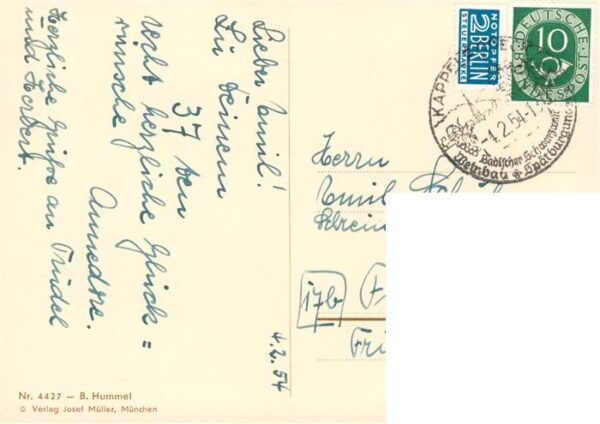 Lieber Emil!
Zu Deinem
37 ten
recht herzliche Glück=
wünsche
Annedore.
Herzliche Grüße an Trudel
und Herbert.
4.2.54
Nr. 4427 – B. Hummel
© Verlag Josef Müller, München
NOTOPFER
2 BERLIN
STEUERMARKE
DEUTSCHE
BUNDESPOST
10
KAPPEL
-4.2.54-1
Badischer Schwarzwald
Weinbau Spätburgunder
Herrn
Emil
Schrein
17b